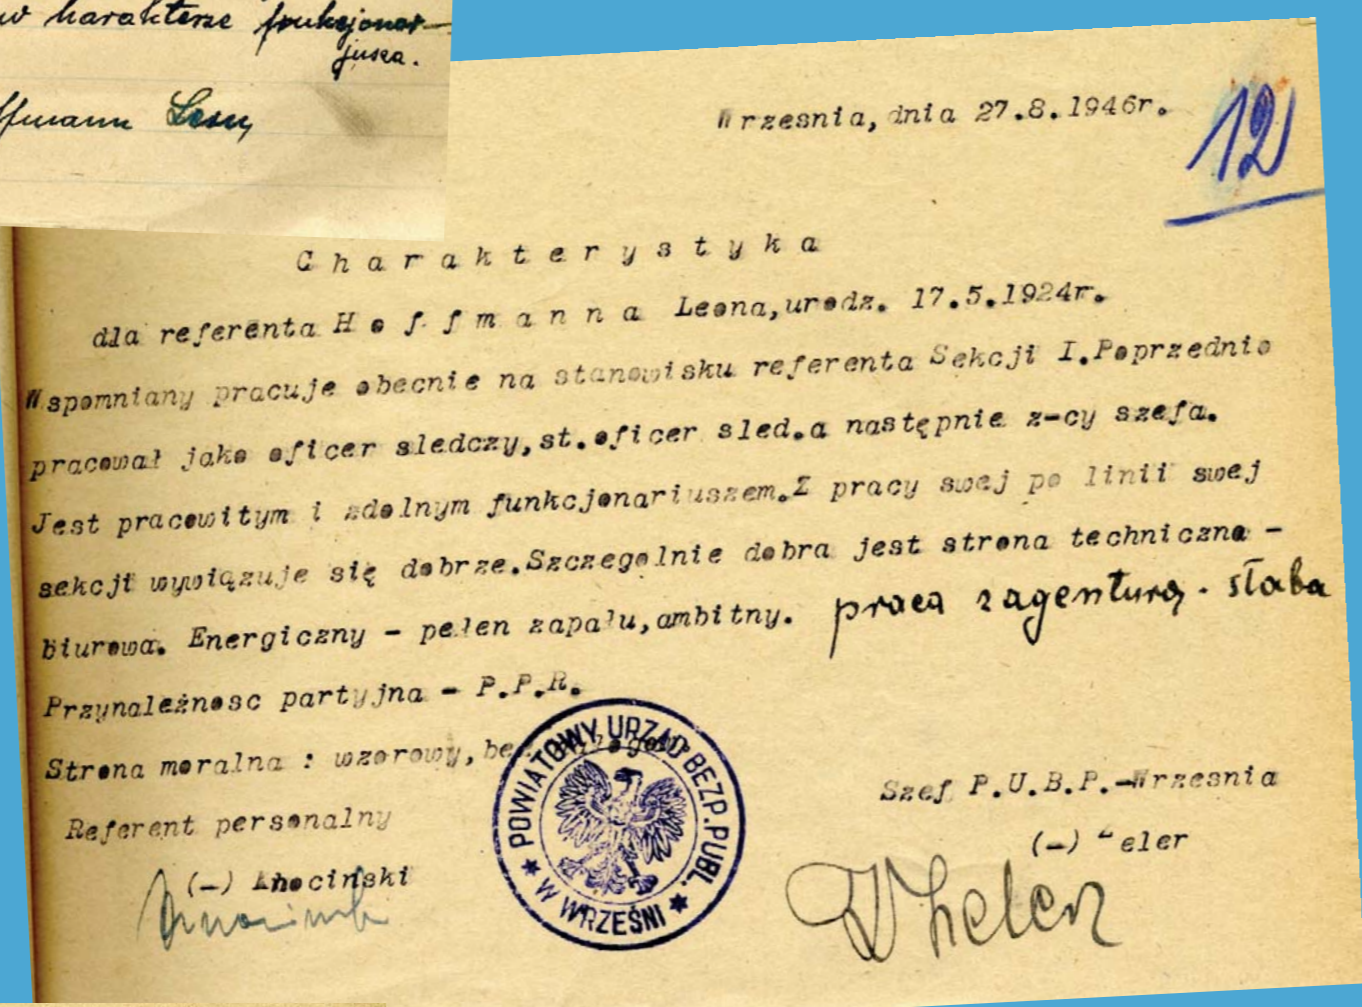 w harakterze funkcjonar-
jusza.
ffmann Leon
Wrzesnia,dnia 27.8.1946r.
12
C h a r a k t e r y s t y k a
dla referenta H o f f m a n n a Leona,urodz. 17.5.1924r.
Wspomniany pracuje obecnie na stanowisku referenta Sekcji I.Poprzednio
pracował jako oficer sledczy,st.oficer sled.a następnie z-cy szefa.
Jest pracowitym i zdolnym funkcjonariuszem.Z pracy swej po linii swej
sekcji wywiązuje się dobrze.Szczegolnie dobra jest strona techniczno -
biurowa. Energiczny - pełen zapału,ambitny. praca z agenturą - słaba
Przynależnosc partyjna - P.P.R.
Strona moralna : wzorowy,be
POWIATOWY URZĄD BEZP. PUBL. * W WRZEŚNI *
Szef P.U.B.P.-Wrzesnia
Referent personalny
(-) eler
(-) cinski